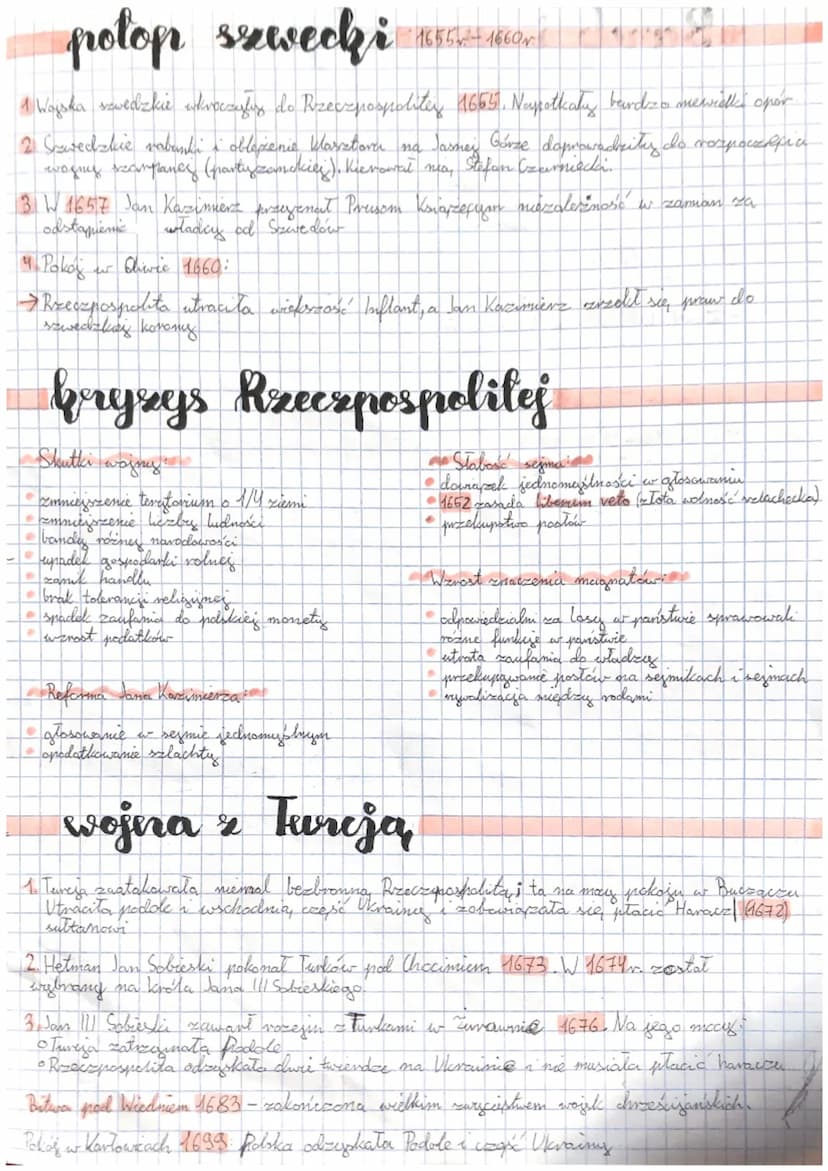 potop szwecki 1655r. - 1660r.
1. Wojska szwedzkie wkroczyły do Rzeczpospolitej 1655. Napotkały bardzo niewielki opór
2. Szwedzkie rabunki i oblężenie klasztoru na Jasnej Górze doprowadziły do rozpoczęcia
wojny szarpanej (partyzanckiej). Kierował nią Stefan Czarniecki.
3 W 1657 Jan Kazimierz przyznał Prusom Książęcym niezależność w zamian za
odstąpienie władcy od Szwedów
4. Pokój w Oliwie 1660:
→ Rzeczpospolita utraciła większość Inflant, a Jan Kazimierz zrzekł się praw do
szwedzkiej korony
kryzys Rzeczpospolitej
Skutki wojny:
• zmniejszenie terytorium o 1/4 ziemi
• zmniejszenie liczby ludności
• bandy różnej narodowości
• upadek gospodarki rolnej
• zanik handlu
• brak tolerancji religijnej
• spadek zaufania do polskiej monety
• wzrost podatków
Reforma Jana Kazimierza:
• głosowanie w sejmie jednomyślnym
• opodatkowanie szlachty
Słabość sejmu:
• jednomyślności w głosowaniu
• 1652 zasada liberum veto (złota wolność szlachecka)
• przekupstwo posłów
Wzrost znaczenia magnatów:
• odpowiedzialni za losy w państwie sprawowali
różne funkcje w państwie
• utrata zaufania do władzy
• przekupywanie posłów na sejmikach i sejmach
• rywalizacja między rodami
wojna z Turcją
1. Turcja zaatakowała niemal bezbronną Rzeczpospolitą i ta na mocy pokoju w Buczaczu
Utraciła podole i wschodnią część Ukrainy i zobowiązała się płacić Haracz (1672)
sułtanowi
2. Hetman Jan Sobieski pokonał Turków pod Chocimiem 1673. W 1674r. został
wybrany na króla Jana III Sobieskiego.
3. Jan III Sobieski zawarł rozejm z Turkami w Żurawnie 1676. Na jego mocy:
○ Turcja zatrzymała Podole
○ Rzeczpospolita odzyskała dwie twierdze na Ukrainie i nie musiała płacić haraczu
Bitwa pod Wiedniem 1683 - zakończona wielkim zwycięstwem wojsk chrześcijańskich.
Pokój w Karłowicach 1699: Polska odzyskała Podole i część Ukrainy